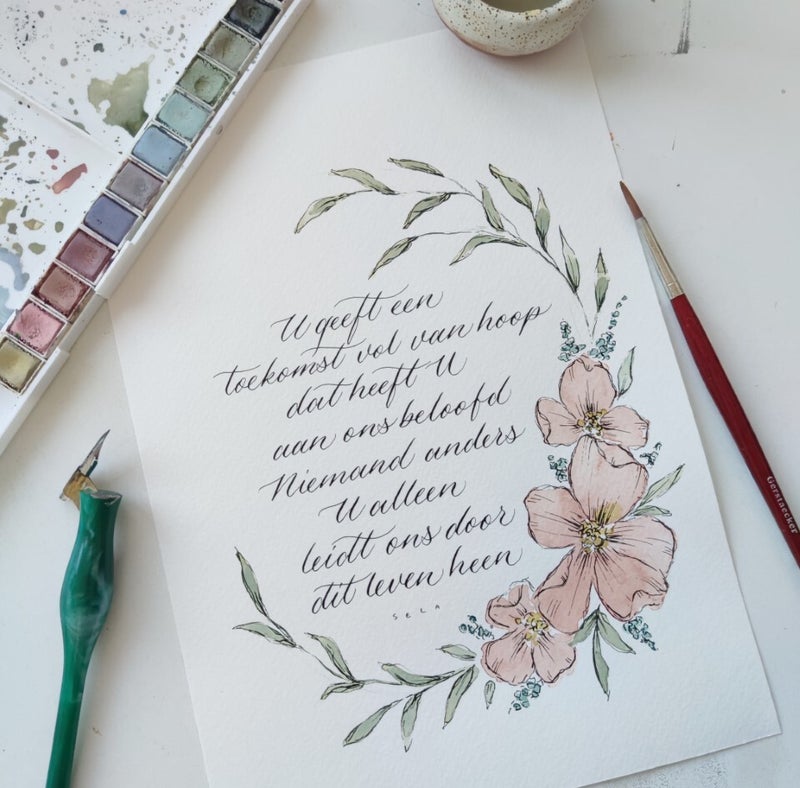 U geeft een
toekomst vol van hoop
dat heeft U
aan ons beloofd
Niemand anders
U alleen
leidt ons door
dit leven heen
SELA
Gerstaecker